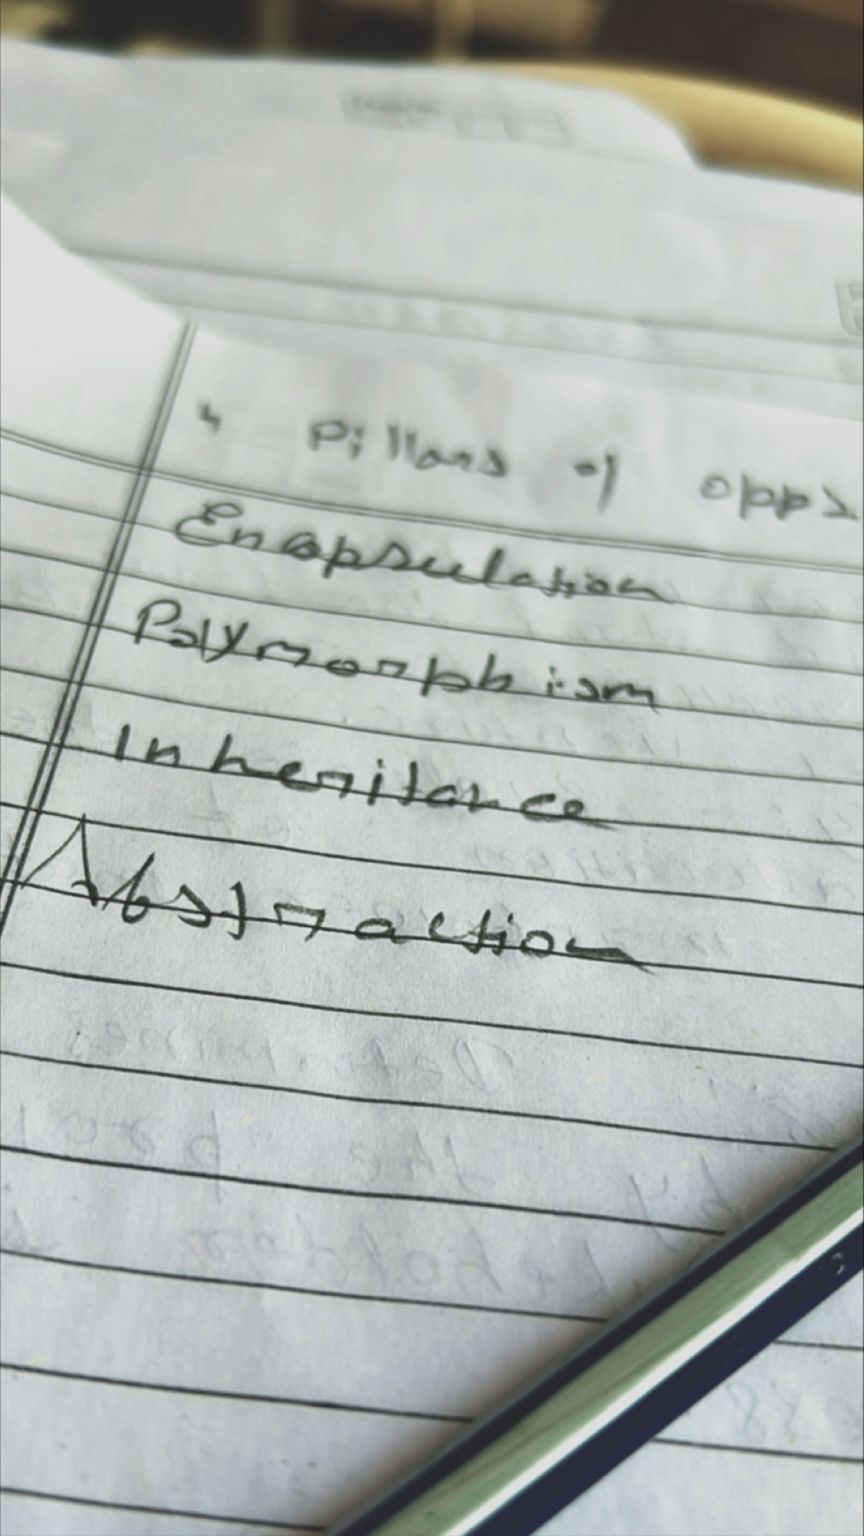 4 Pillars of opps.
Encapsulation
Polymorphism
Inheritance
Abstraction